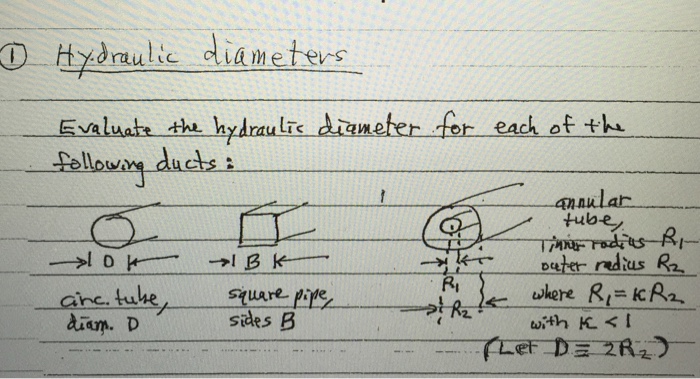 ① Hydraulic diameters
Evaluate the hydraulic diameter for each of the
following ducts:
D
circ. tube,
diam. D
B
square pipe,
sides B
R₁
R₂
annular
tube,
inner radius R₁
outer radius R₂
where R₁ = κR₂
with κ < 1
(Let D ≡ 2R₂)